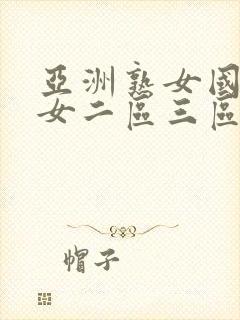 亞洲熟女國
女二區三區
帽子